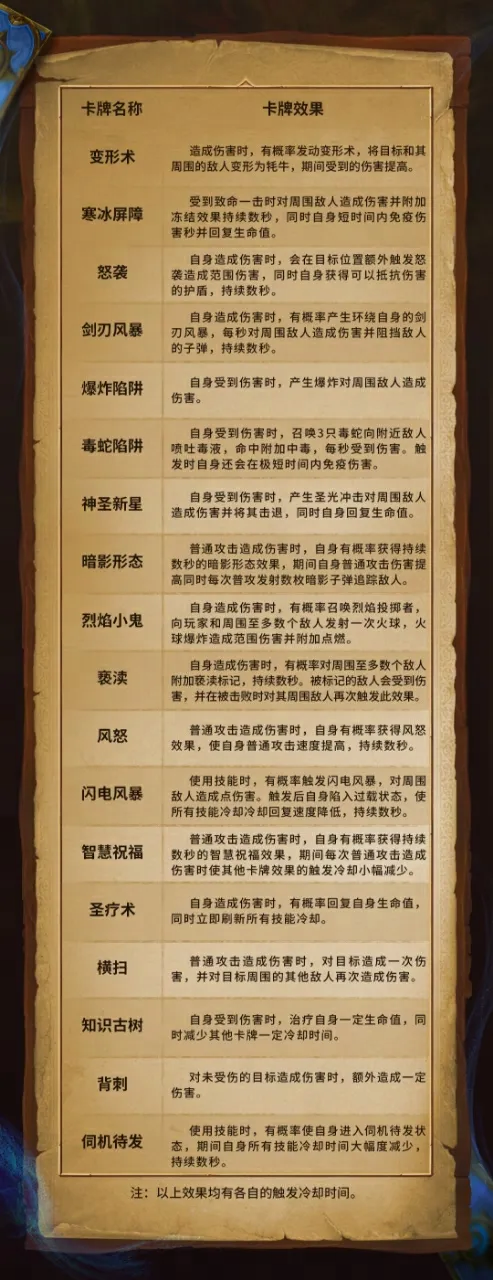 卡牌名称 卡牌效果
变形术
造成伤害时，有概率发动变形术，将目标和其
周围的敌人变形为牦牛，期间受到的伤害提高。
寒冰屏障
受到致命一击时对周围敌人造成伤害并附加
冻结效果持续数秒，同时自身短时间内免疫伤
害秒并回复生命值。
怒袭
自身造成伤害时，会在目标位置额外触发怒
袭造成范围伤害，同时自身获得可以抵抗伤害
的护盾，持续数秒。
剑刃风暴
自身造成伤害时，有概率产生环绕自身的剑
刃风暴，每秒对周围敌人造成伤害并阻挡敌人
的子弹，持续数秒。
爆炸陷阱
自身受到伤害时，产生爆炸对周围敌人造成
伤害。
毒蛇陷阱
自身受到伤害时，召唤3只毒蛇向附近敌人
喷吐毒液，命中附加中毒，每秒受到伤害。触
发时自身还会在极短时间内免疫伤害。
神圣新星
自身受到伤害时，产生圣光冲击对周围敌人
造成伤害并将其击退，同时自身回复生命值。
暗影形态
普通攻击造成伤害时，自身有概率获得持续
数秒的暗影形态效果，期间自身普通攻击伤害提
高同时每次普攻发射数枚暗影子弹追踪敌人。
烈焰小鬼
自身造成伤害时，有概率召唤烈焰投掷者，
向玩家和周围至多数个敌人发射一次火球，火
球爆炸造成范围伤害并附加点燃。
亵渎
自身造成伤害时，有概率对周围至多数个敌人
附加亵渎标记，持续数秒。被标记的敌人会受到伤
害，并在被击败时对其周围敌人再次触发此效果。
风怒
普通攻击造成伤害时，自身有概率获得风怒
效果，使自身普通攻击速度提高，持续数秒。
闪电风暴
使用技能时，有概率触发闪电风暴，对周围
敌人造成点伤害。触发后自身陷入过载状态，使
所有技能冷却冷却回复速度降低，持续数秒。
智慧祝福
普通攻击造成伤害时，自身有概率获得持续
数秒的智慧祝福效果，期间每次普通攻击造成
伤害时使其他卡牌效果的触发冷却小幅减少。
圣疗术
自身造成伤害时，有概率回复自身生命值，
同时立即刷新所有技能冷却。
横扫
普通攻击造成伤害时，对目标造成一次伤
害，并对目标周围的其他敌人再次造成伤害。
知识古树
自身受到伤害时，治疗自身一定生命值，同
时减少其他卡牌一定冷却时间。
背刺
对未受伤的目标造成伤害时，额外造成一定
伤害。
伺机待发
使用技能时，有概率使自身进入伺机待发状
态，期间自身所有技能冷却时间大幅度减少，
持续数秒。
注：以上效果均有各自的触发冷却时间。